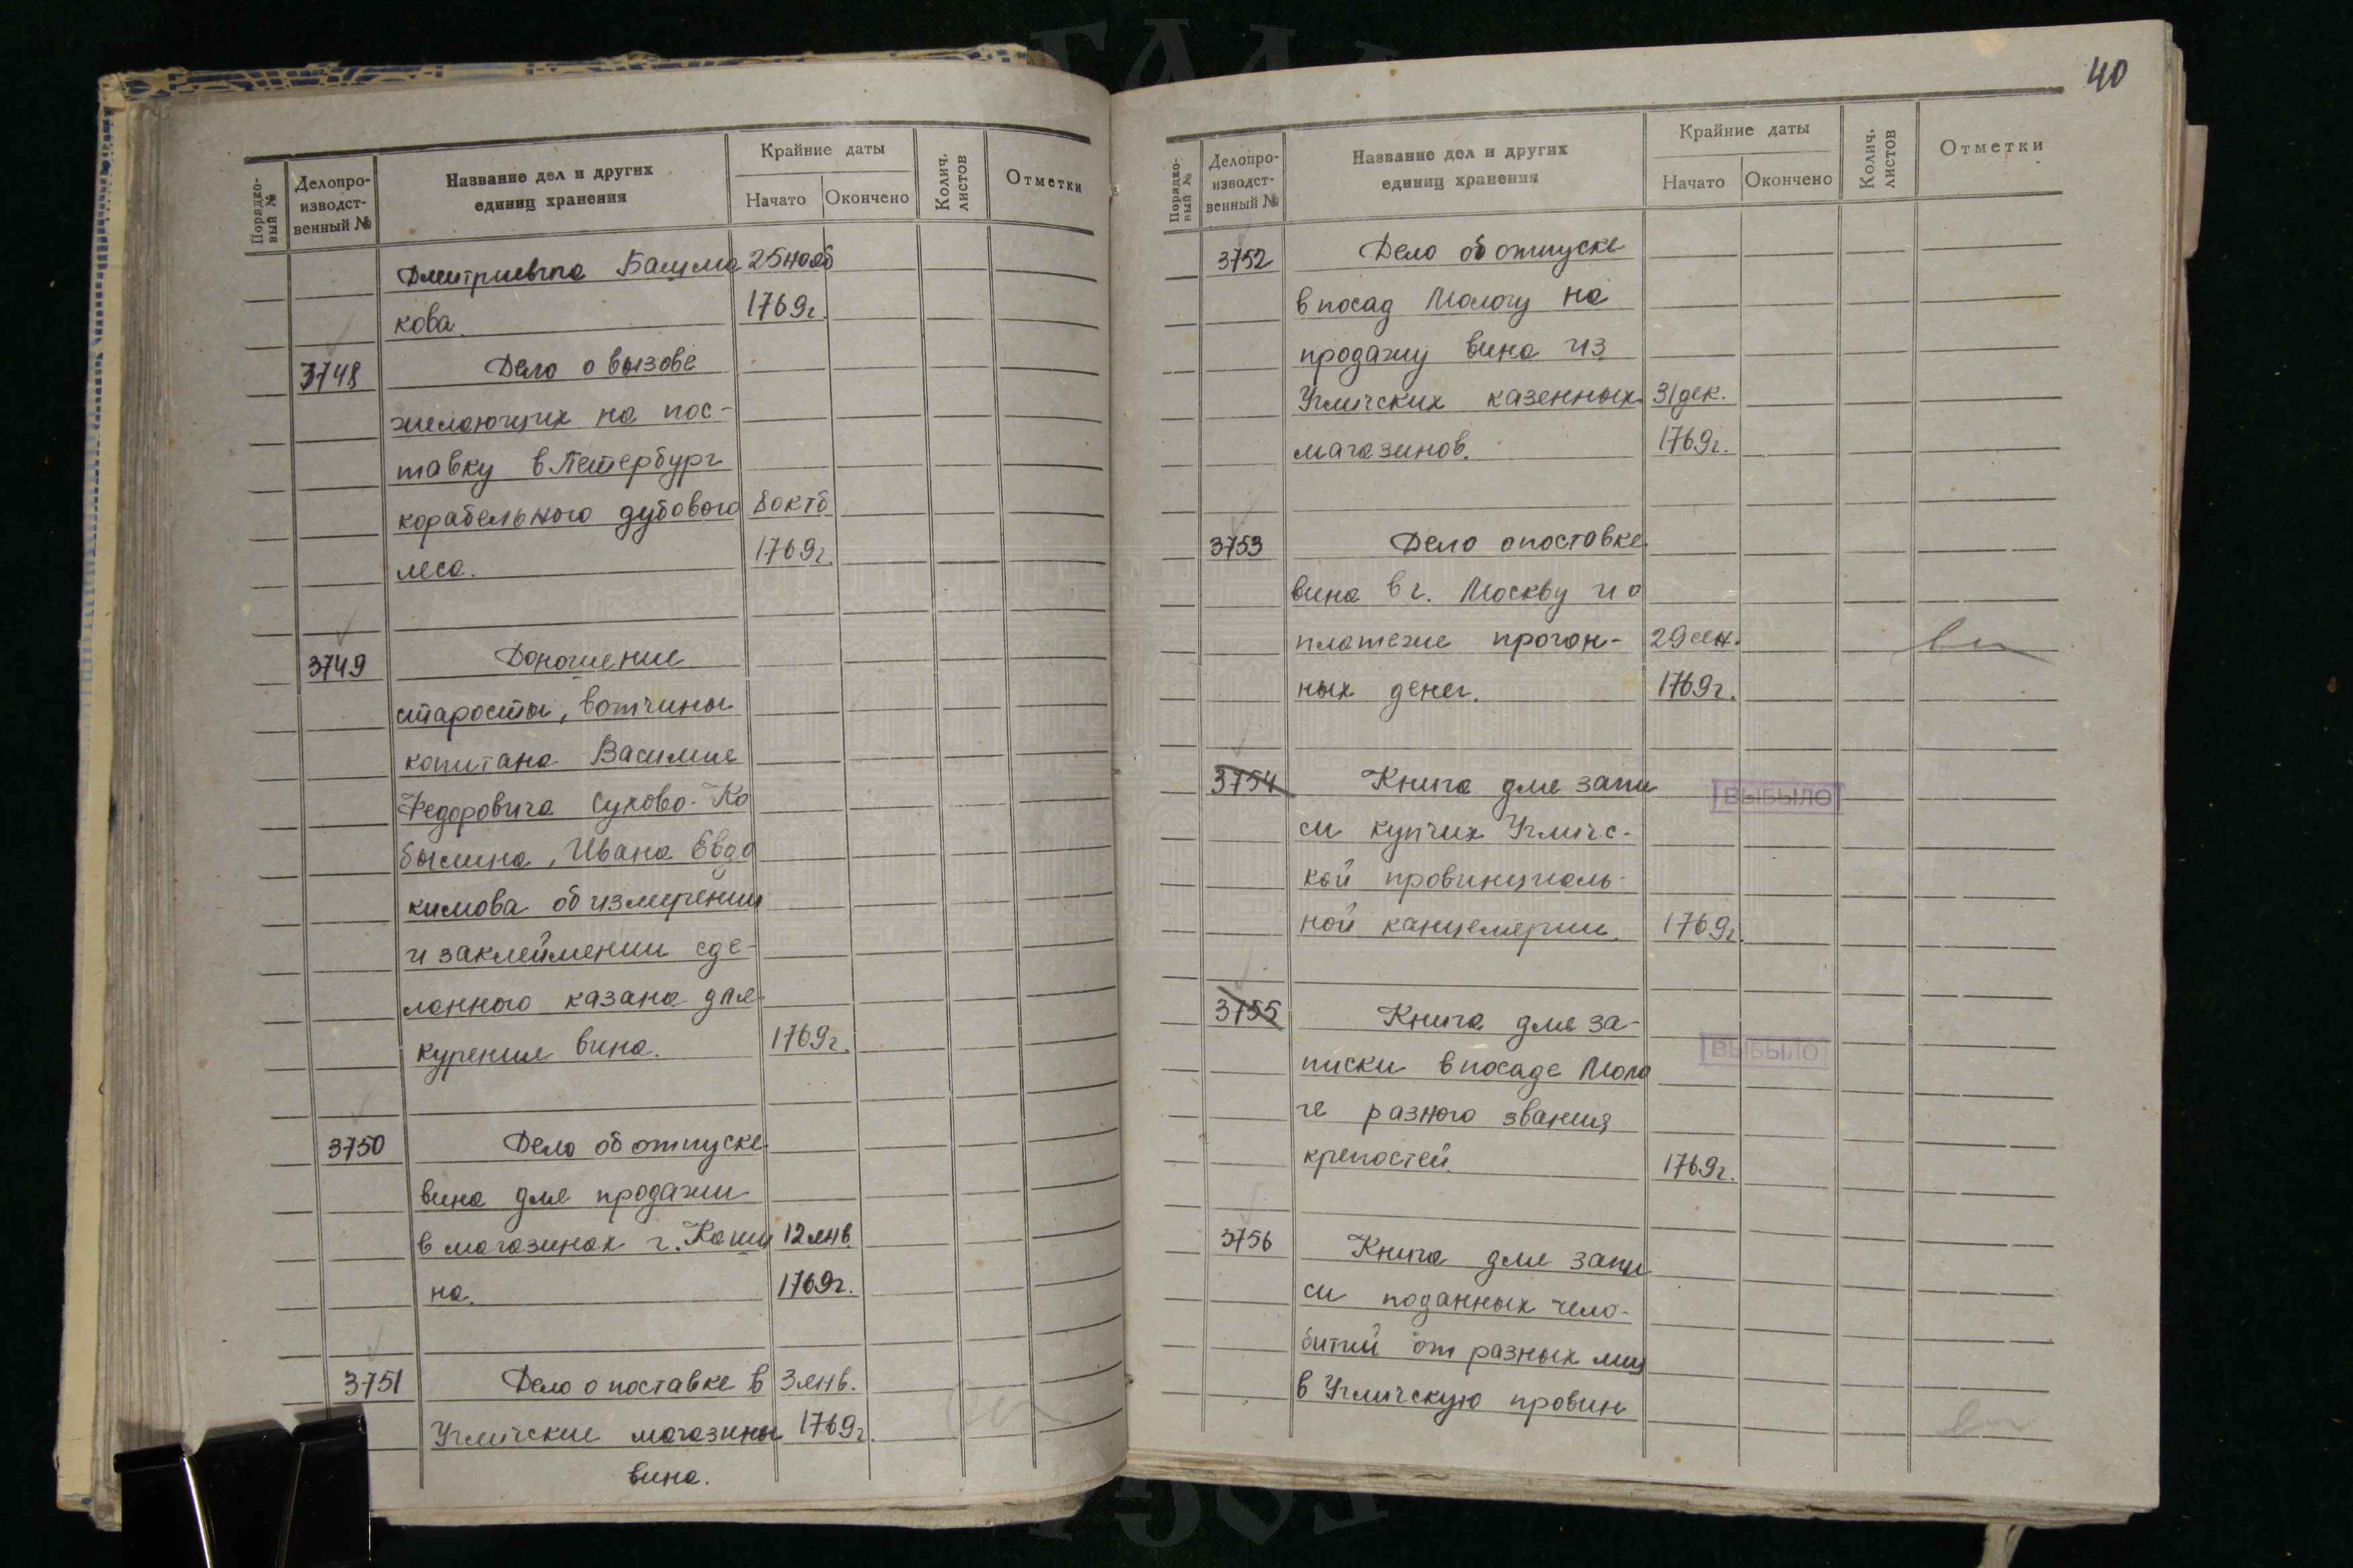 Порядко-
вый №
Делопро-
изводст-
венный №
Название дел и других
единиц хранения
Крайние даты
Начато
Окончено
Колич.
листов
Отметки
Дмитриевича Башма 25 нояб
кова. 1769г.
3748 Дело о вызове
желающих на пос-
тавку в Петербург
корабельного дубового 8 октб
леса. 1769г.
3749 Доношение
старосты, вотчины
капитана Василия
Федоровича Сухово-Ко
былина, Ивана Евдо
кимова об измерении
и заклеймении сде-
ланного казана для
курения вина. 1769г.
3750 Дело об отпуске
вина для продажи
в магазинах г. Каши 12 янв.
на. 1769г.
3751 Дело о поставке в 3 янв.
Угличские магазины 1769г.
вина.
40
Порядко-
вый №
Делопро-
изводст-
венный №
Название дел и других
единиц хранения
Крайние даты
Начато
Окончено
Колич.
листов
Отметки
3752 Дело об отпуске
в посад Мологу на
продажу вина из
Угличских казенных 31 дек.
магазинов. 1769г.
3753 Дело о поставке
вина в г. Москву и о
платеже прогон- 29 сен.
ных денег. 1769г.
3754 Книга для запи
ВЫБЫЛО
си купчих Угличс-
кой провинциаль-
ной канцелярии. 1769г.
3755 Книга для за-
ВЫБЫЛО
писки в посаде Моло
ге разного звания
крепостей. 1769г.
3756 Книга для запи
си поданных чело-
битий от разных лиц
в Угличскую провин